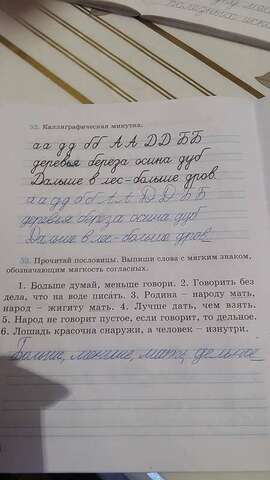 52. Каллиграфическая минутка.
а а д д б б А А Д Д Б Б
деревья береза осина дуб
Дальше в лес - больше дров.
а а д д б б А А Д Д Б Б
деревья берёза осина дуб
Дальше в лес - больше дров.
53. Прочитай пословицы. Выпиши слова с мягким знаком,
обозначающим мягкость согласных.
1. Больше думай, меньше говори. 2. Говорить без
дела, что на воде писать. 3. Родина – народу мать,
народ – жигиту мать. 4. Лучше дать, чем взять.
5. Народ не говорит пустое, если говорит, то дельное.
6. Лошадь красочна снаружи, а человек – изнутри.
Больше, меньше, мать, дельное